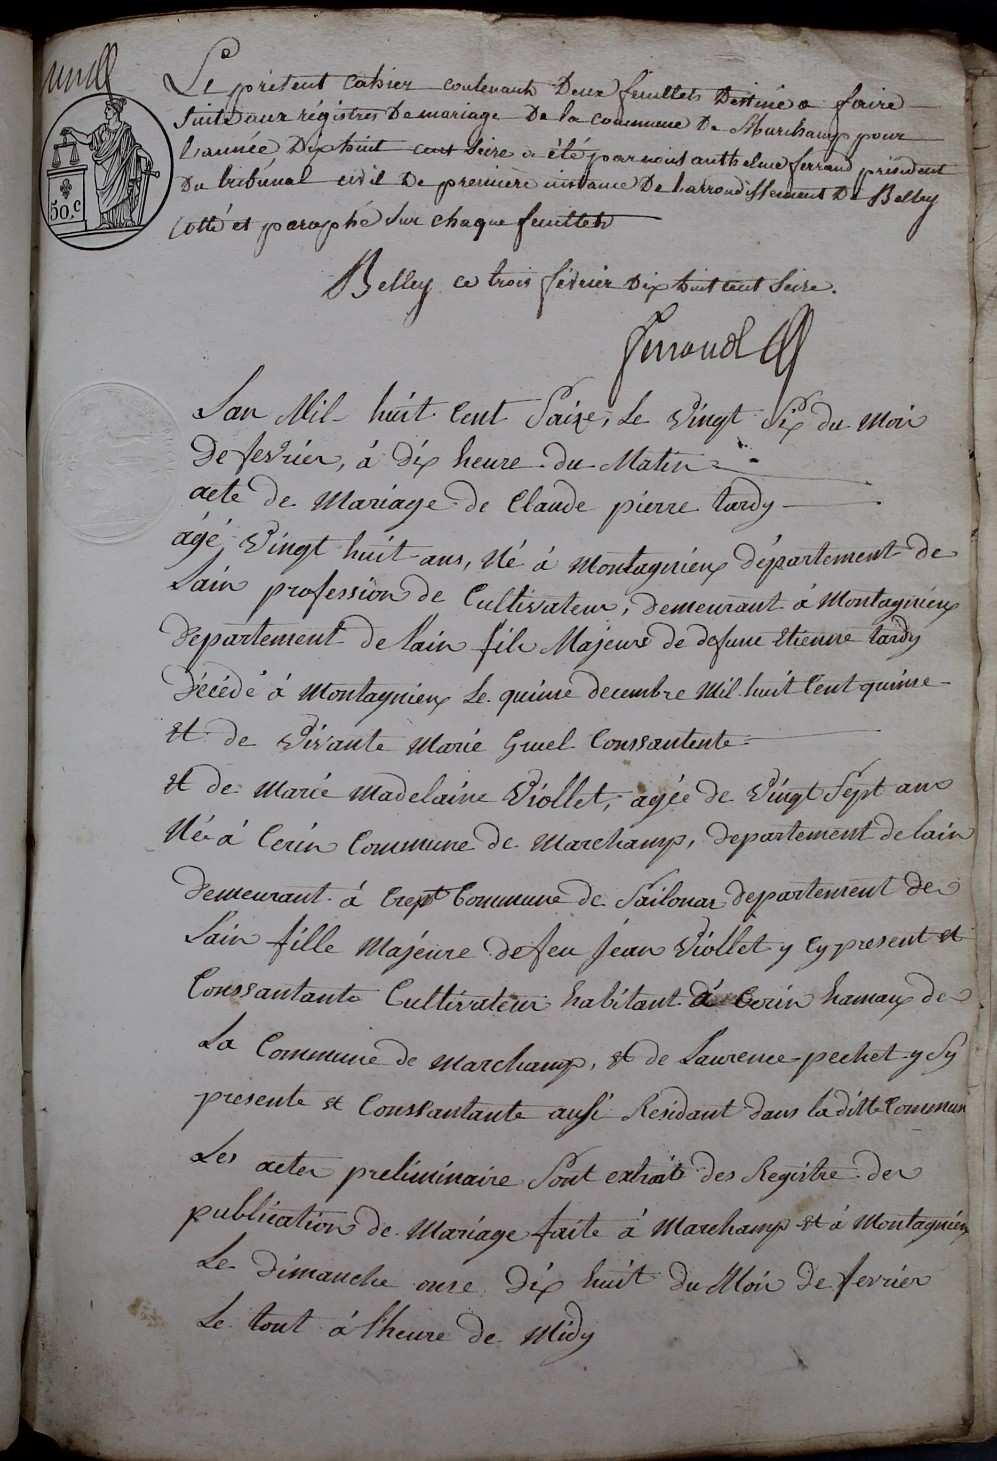 Le présent cahier contenant Deux feuillets Destiné a faire
suite aux régistres De mariage De la commune De Marchamp pour
L'année Dix huit cent seize a été par nous anthelme ferrand président
Du tribunal civil De première instance De L'arrondissement De Belley
Cotté et paraphé sur chaque feuillet
50.c
Belley ce trois février Dix huit cent seize.
ferrand
Lan Mil huit Cent Saize, Le Vingt Six du Moi
de fevrier, à dix heure du Matin
acte de Mariage de Claude pierre tardy
âgé Vingt huit ans, Né à Montagnieux département de
Lain profession de Cultivateur, demeurant à Montagnieux
département de lain fils Majeure de defunt etienne tardy
Décédé à Montagnieux Le quinse decembre Mil huit Cent quinse
et de Vivante Marie Gruel Conssantente
et de Marie Madelaine Viollet, agée de Vingt Sept ans
Né à Cerin Commune de Marchamp, departement de lain
demeurant à Crept Commune de Sailonas departement de
Lain fille Majeure de feu Jean Viollet y Cy present et
Conssantante Cultivateur habitant à Cerin hamaux de
La Commune de Marchamp, et de Laurence pechet y Sy
presente et Conssantante aussi Residant dans la ditte Commune
Les actes preliminaire Sont extrait des Registre de
publication de Mariage faite à Marchamp et à Montagnieux
Le dimanche onse dix huit du Moi de fevrier
Le tout à l'heure de Midy